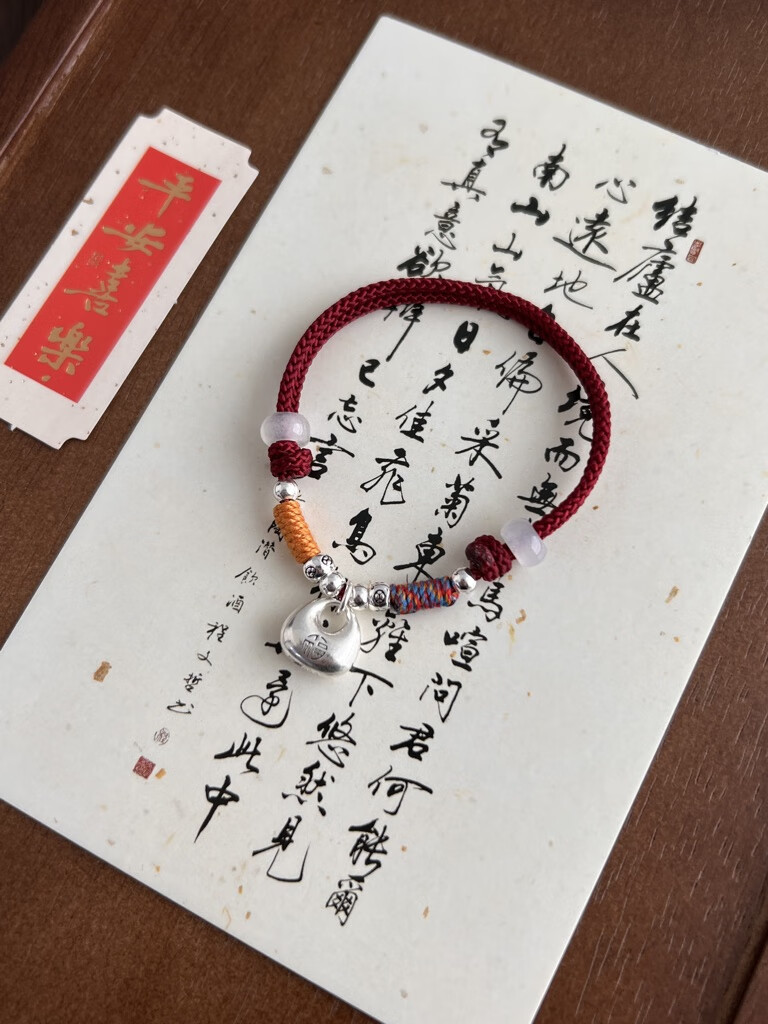 平安喜樂
结廬在人境而無馬喧問君何能爾
心遠地自偏采菊東籬下悠然見
南山山氣日夕佳飛鳥還此中
有真意欲辨已志言
潛飲酒程文哲书
福